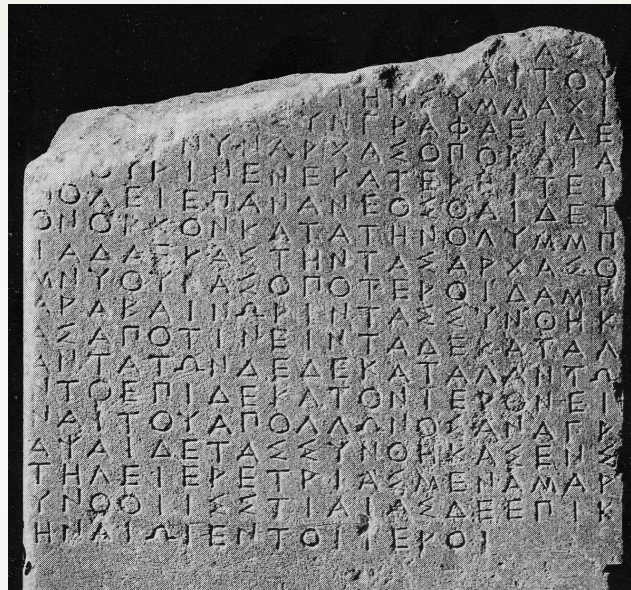 Δ
ΑΙΤΟΥ
ΙΗΝΣΥΜΜΑΧΙ
ΣΥΝΓΡΑΦΑΕΙΔΕ
ΝΥΝΑΡΧΑΣΟΠΟΚΔΙΑ
ΟΥΡΙΝΕΝΕΚΑΤΕΡΗΙΤΕΙ
ΠΟΛΕΙΕΠΑΝΑΝΕΟΣΘΑΙΔΕΤ
ΟΝΟΡΚΟΝΚΑΤΑΤΗΝΟΛΥΜΜΠ
ΙΑΔΑΕΚΑΣΤΗΝΤΑΣΑΡΧΑΣΟ
ΜΝΥΟΥΡΑΣΟΠΟΤΕΡΟΙΔΑΜΡ
ΑΡΑΒΑΙΝΩΡΙΝΤΑΣΣΥΝΘΗΚ
ΑΣΑΠΟΤΙΝΕΙΝΤΑΔΕΚΑΤΑΛ
ΑΝΤΑΤΩΝΔΕΔΕΚΑΤΑΛΑΝΤΩ
ΝΤΟΕΠΙΔΕΚΑΤΟΝΙΕΡΟΝΕΙ
ΝΑΙΤΟΥΑΠΟΛΛΩΝΟΣΑΝΑΓΡ
ΑΨΑΙΔΕΤΑΣΣΥΝΘΗΚΑΣΕΝΣ
ΤΗΛΕΙΕΡΕΤΡΙΑΣΜΕΝΑΜΑΡ
ΥΝΘΟΙΙΣΣΤΙΑΙΑΣΔΕΕΠΙΚ
ΗΝΑΙΩΙΕΝΤΟΙΙΕΡΟΙ